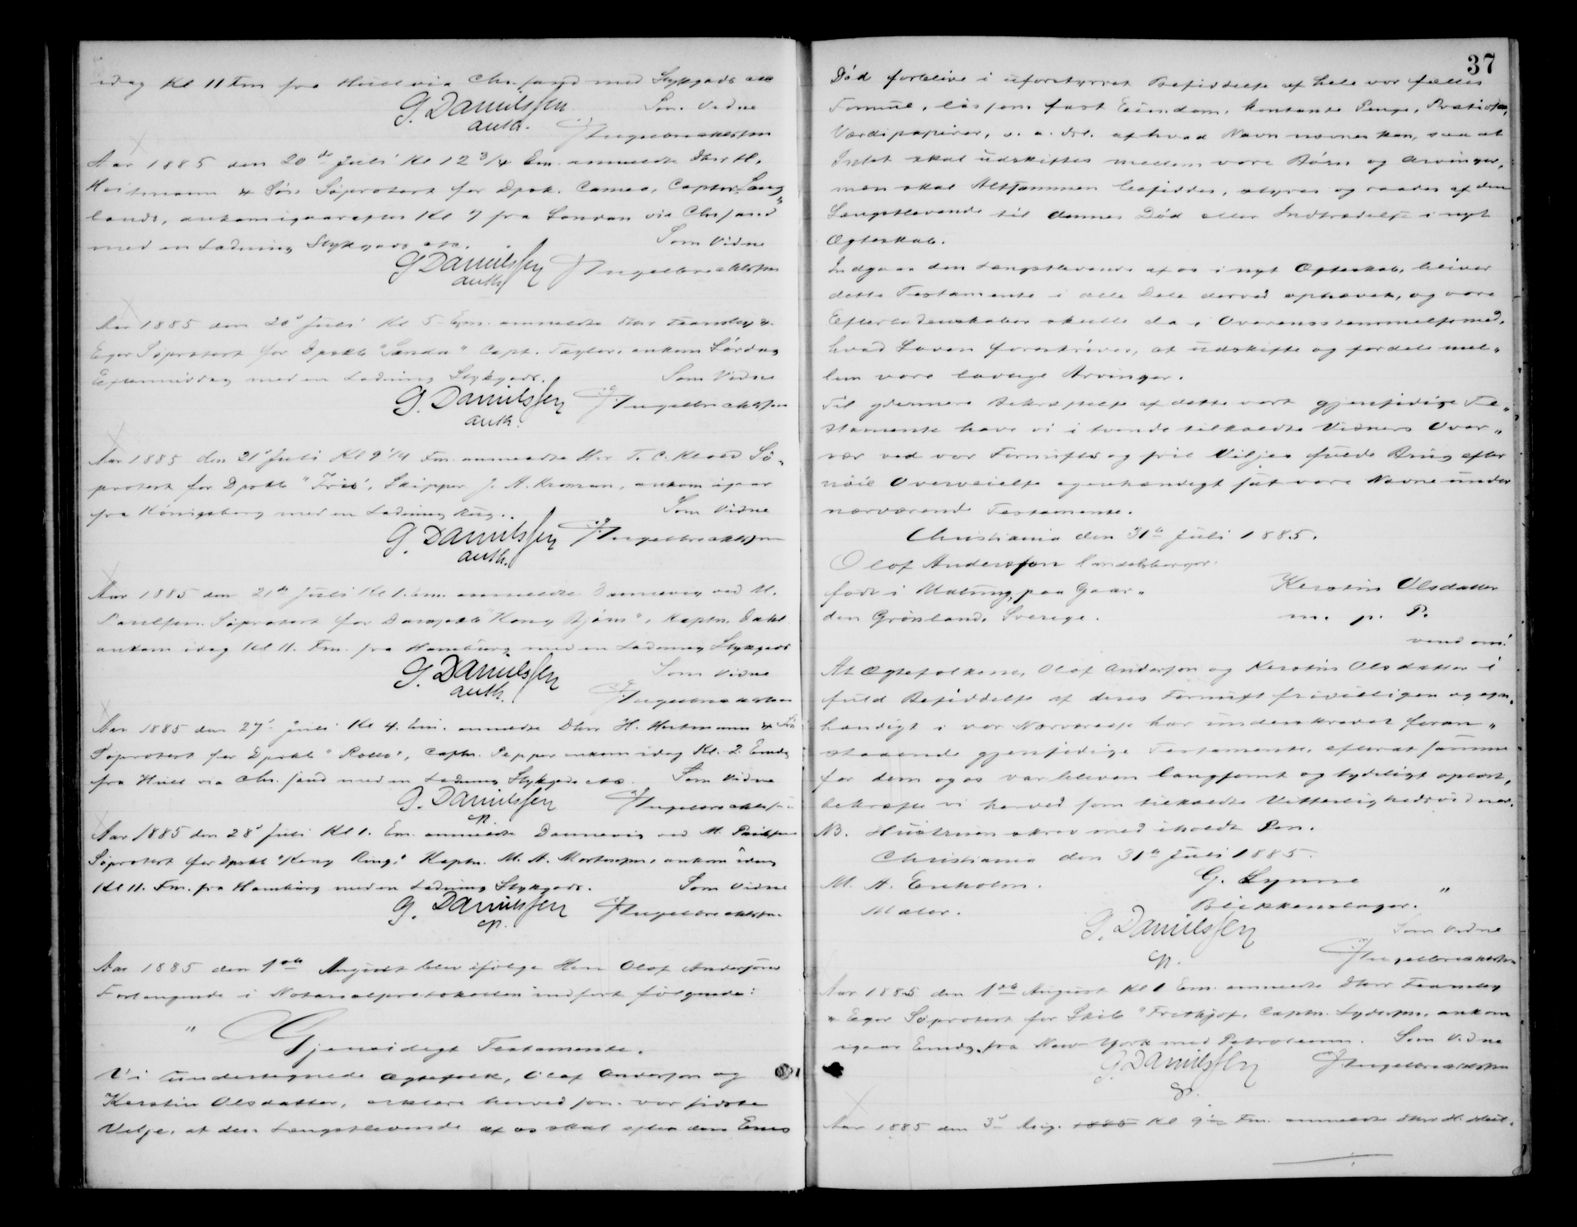 idag Kl 11 Fm fra Hull via Chr.sand med Stykgods etc
G. Danielssen Som Vidne
auth. J. Ingebrechtsen
Aar 1885 den 20de Juli Kl 12 3/4 Em. anmeldte Dhrr H.
Heitmann & Søn Søprotest for Dpsk. Cameo, Captn Lang
lands, ankom igaaraftes Kl 7 fra London via Chr.sand
med en Ladning Stykgods etc. Som Vidne
G Danielssen J Ingebrechtsen
auth
Aar 1885 den 20d Juli Kl 5 Em. anmeldte Dhrr Fearnley &
Eger Søprotest for Dpskb "Sanda" Capt. Taylor, ankom Lørdag
Eftermiddag med en Ladning Stykgods. Som Vidne
G. Danielssen J Ingebrechtsen
auth.
Aar 1885 den 21d Juli Kl 9 1/4 Fm. anmeldte Hr. T. C. Sø-
protest for Dpskb "Friis", Skipper J. H. Kroman, ankom igaar
fra Königsberg med en Ladning Rug. Som Vidne
G. Danielssen J Ingebrechtsen
auth.
Aar 1885 den 21de Juli Kl 1. Em. anmeldte Dannevig ved M.
Paulsen Søprotest for Dampskb "Kong Bjørn", Kaptn. Dahl
ankom idag Kl 11. Fm. fra Hamburg med en Ladning Stykgods
G. Danielssen Som Vidne
auth. J Ingebrechtsen
Aar 1885 den 27d Juli Kl 4. Em. anmeldte Dhrr H. Heitmann & Søn
Søprotest for Dpskb "Rollo", Captn. Pepper ankom idag Kl. 2 Emdg
fra Hull via Chr.sand med en Ladning Stykgods etc. Som Vidne
G. Danielssen J Ingebrechtsen
cp.
Aar 1885 den 28d Juli Kl 1. Em. anmeldte Dannevig ved M. Paulsen
Søprotest for Dpskb "Kong Ring" Kaptn. M. A. Mortensen, ankom idag
Kl 11. Fm. fra Hamburg med en Ladning Stykgods. Som Vidne
G. Danielssen J Ingebrechtsen.
cp.
Aar 1885 den 1ste August blev ifølge Herr Olof Anderssons
Forlangende i Notarialprotokollen indført følgende:
" Gjensidigt Testamente.
Vi undertegnede Ægtefolk, Olof Andersson og
Kerstin Olsdatter, erklære herved som vor sidste
Vilje, at den Længstlevende af os skal efter den Enes
37
Død forblive i uforstyrret Besiddelse af hele vor fælles
Formue, løs som fast Eiendom, kontante Penge, Pretiosa,
Værdipapirer, o. a. desl. af hvad Navn nævnes kan, saa at
Intet skal udskiftes mellem vore Børn og Arvinger,
men skal Altsammen besiddes, styres og raades af den
Længstlevende til dennes Død eller Indtrædelse i nyt
Ægteskab.
Indgaar den Længstlevende af os i nyt Ægteskab, bliver
dette Testamente i alle Dele derved ophævet, og vore
Efterladenskaber skulle da i Overensstemmelse med,
hvad Loven foreskriver, at udskifte og fordele mel-
lem vore lovlige Arvinger.
Til ydermere Bekræftelse af dette vort gjensidige Te-
stamente have vi i tvende tilkaldte Vidners Over-
vær ved vor Fornufts og frie Viljes fulde Brug efter
nøie Overveielse egenhændigt sat vore Navne under
nærværende Testamente.
Christiania den 31te Juli 1885.
Olof Andersson Handelsborger.
født i Malung, paa Gaar-
den Grønland, Sverige.
Kerstin Olsdatter
m. p. P.
vend om!
At Ægtefolkene, Olof Andersson og Kerstin Olsdatter i
fuld Besiddelse af deres Fornuft frivilligen og egen-
hændigt i vor Nærværelse har underskrevet foran-
staaende gjensidige Testamente, efterat samme
for dem og os var bleven langsomt og tydeligt oplæst,
bekræfte vi herved som tilkaldte Vitterlighedsvidner.
NB. Hustruen skrev med iholdt Pen.
Christiania den 31te Juli 1885.
M. A. Enholm. G. Lynne
Maler. Blikkenslager. "
G. Danielssen Som Vidne
cp. J Ingebrechtsen
Aar 1885 den 1ste August Kl 1 Em. anmeldte Dhrr Fearnley
& Eger Søprotest for Skib "Frithjof, Captn. Lydersen, ankom
igaar Emdg. fra New York med Petroleum. Som Vidne
G. Danielssen J Ingebrechtsen
cp.
Aar 1885 den 3d Aug. 1885 Kl 9 1/2 Fm. anmeldte Dhrr H. Heit-